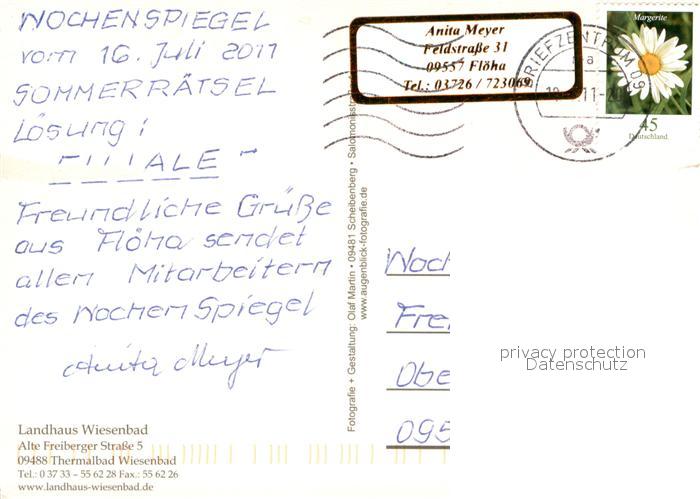 WOCHENSPIEGEL
vom 16. Juli 2011
SOMMERRÄTSEL
Lösung:
"FILIALE"
Freundliche Grüße
aus Flöha sendet
allen Mitarbeitern
des Wochen Spiegel
Anita Meyer
Landhaus Wiesenbad
Alte Freiberger Straße 5
09488 Thermalbad Wiesenbad
Tel.: 0 37 33 – 55 62 28 Fax.: 55 62 26
www.landhaus-wiesenbad.de
Fotografie + Gestaltung: Olaf Martin • 09481 Scheibenberg • Salomonisstr.
www.augenblick-fotografie.de
Anita Meyer
Feldstraße 31
09557 Flöha
Tel.: 03726 / 723069
BRIEFZENTRUM 09
Margerite
45
Deutschland
Woch
Fre
Obe
095
privacy protection
Datenschutz